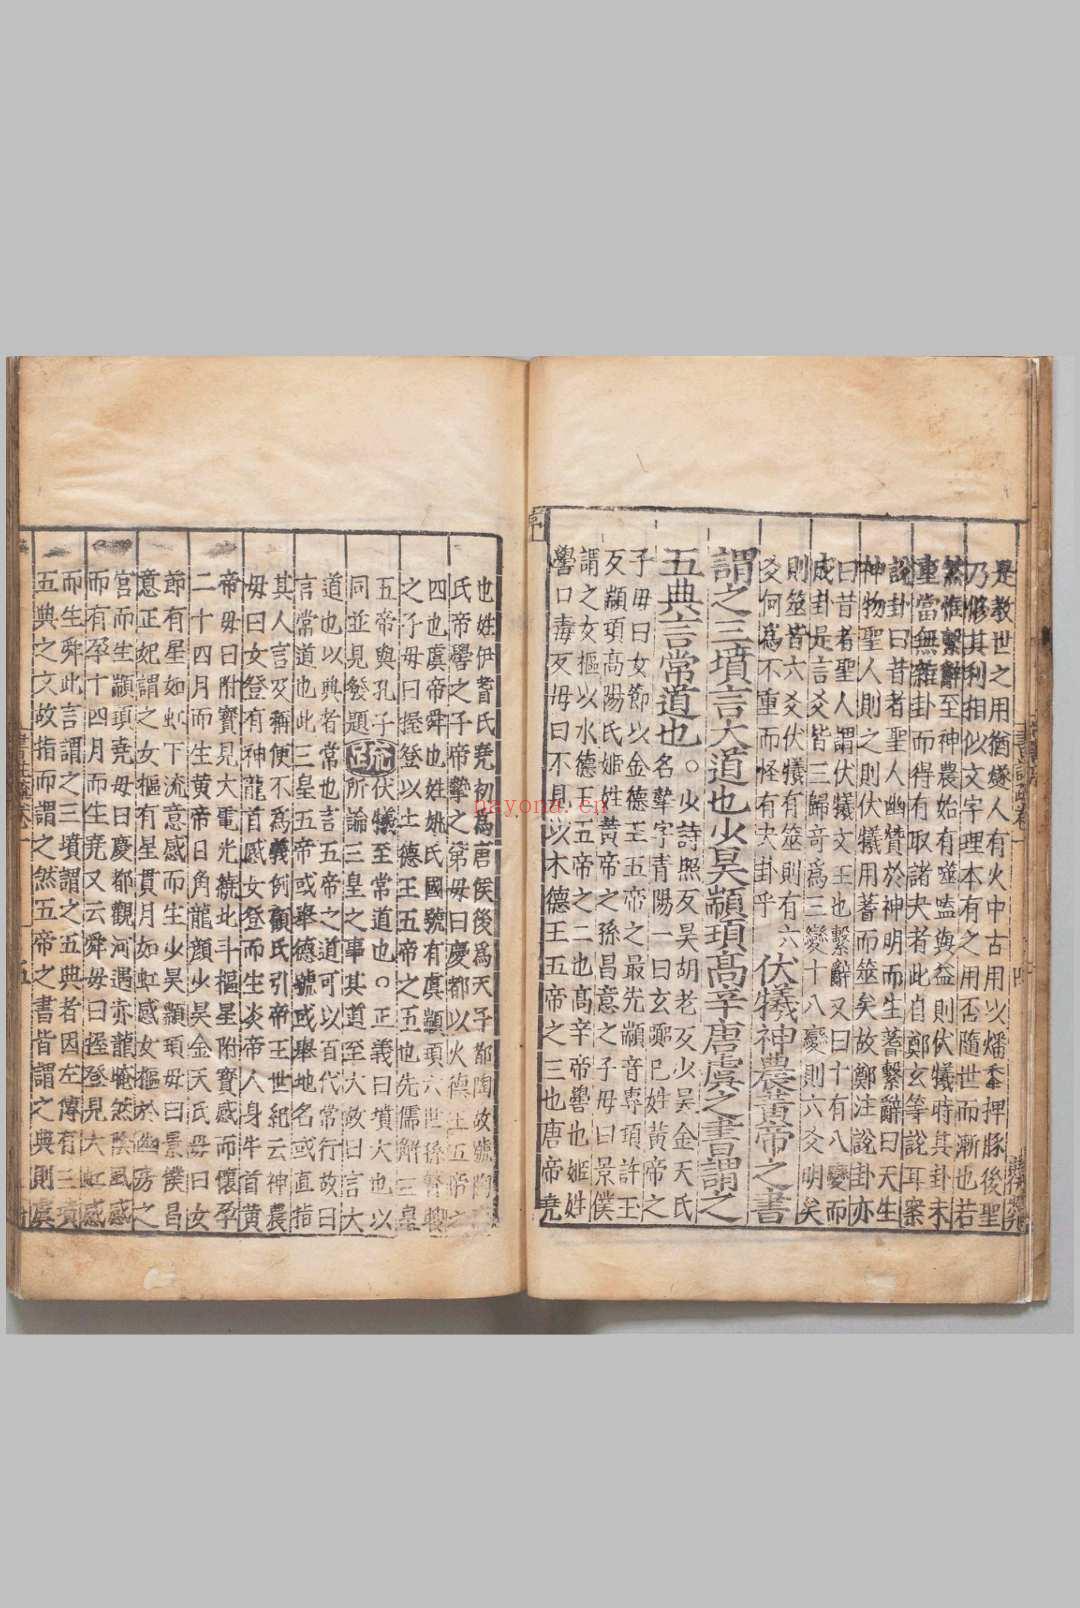 是教世之用猶燧人有火中古用以燔黍捭豚後聖
乃脩其利相似文字理本有之用否隨世而漸也若
然惟繫辭至神農始有噬嗑與益則伏犧時其卦未
重當無雜卦而得有取諸夬者此自鄭玄等說耳案
說卦曰昔者聖人幽贊於神明而生蓍繫辭曰天生
神物聖人則之則伏犧用蓍而筮矣故鄭注說卦亦
曰昔者聖人謂伏犧文王也繫辭又曰十有八變而
成卦是言爻皆三歸奇爲三變十八變則六爻明矣
則筮皆六爻伏犧有筮則有六
爻何爲不重而怪有夬卦乎
伏犧神農黃帝之書
謂之三墳言大道也少昊顓頊髙辛唐虞之書謂之
五典言常道也
。少詩照反昊胡老反少昊金天氏
名摯字青陽一曰玄嚻已姓黃帝之
子毋曰女節以金德王五帝之最先顓音專頊許玉
反顓頊髙陽氏姬姓黃帝之孫昌意之子毋曰景僕
謂之女樞以水德王五帝之二也髙辛帝嚳也姬姓
嚳口毒反毋曰不見以木德王五帝之三也唐帝堯
也姓伊耆氏堯初爲唐侯後爲天子都陶故號陶唐
氏帝嚳之子帝摯之弟毋曰慶都以火德王五帝之
四也虞帝舜也姓姚氏國號有虞顓頊六世孫瞽瞍
之子毋曰握登以土德王五帝之五也先儒解三皇
五帝與孔子
同並見發題
疏
伏犧至常道也。正義曰墳大也以
所論三皇之事其道至大故曰言大
道也以典者常也言五帝之道可以百代常行故曰
言常道也此三皇五帝或舉德號或舉地名或直指
其人言及稱便不爲義例顧氏引帝王世紀云神農
毋曰女登有神龍首感女登而生炎帝人身牛首黃
帝毋曰附寶見大電光繞北斗樞星附寶感而懷孕
二十四月而生黃帝日角龍顏少昊金天氏毋曰女
節有星如虹下流意感而生少昊顓頊毋曰景僕昌
意正妃謂之女樞有星貫月如虹感女樞於幽房之
宮而生顓頊堯毋曰慶都觀河遇赤龍晻然陰風感
而有孕十四月而生堯又云舜毋曰握登見大虹感
而生舜此言謂之三墳謂之五典者因左傳有三墳
五典之文故指而謂之然五帝之書皆謂之典則虞
nayona.cn